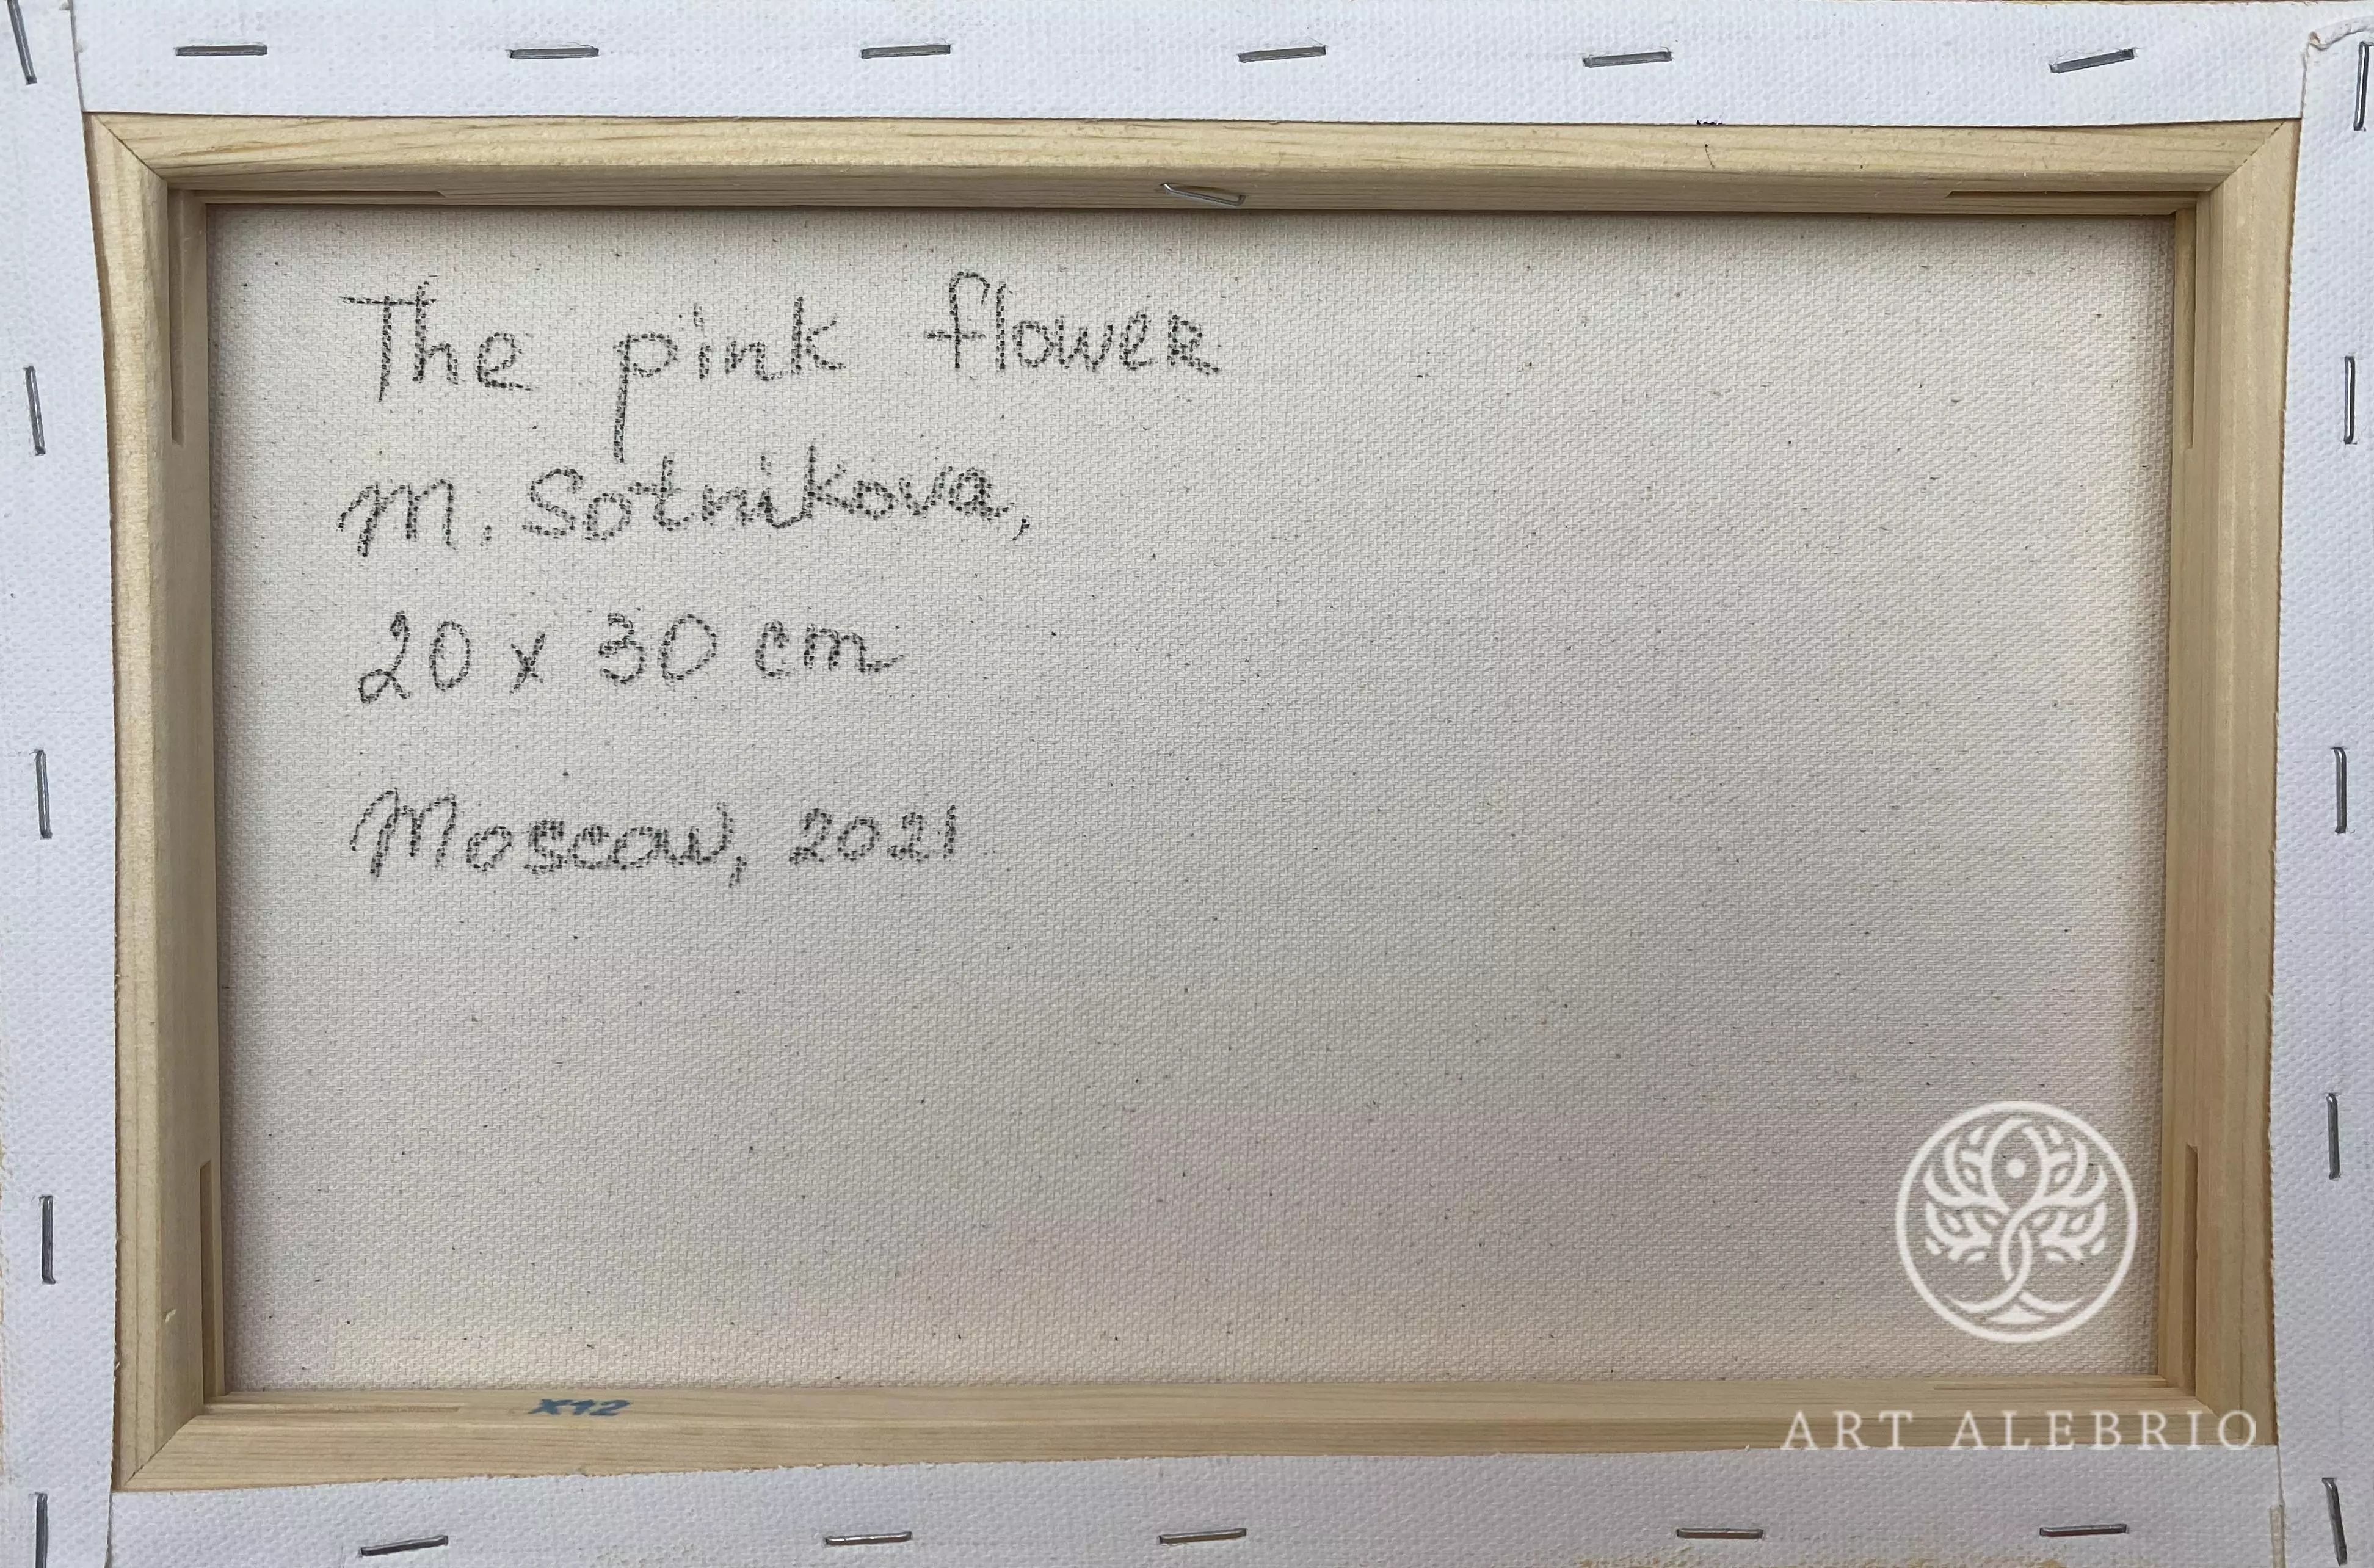 The pink flower
M. Sotnikova,
20 x 30 cm
Moscow, 2021
X12
ART ALEBRIO